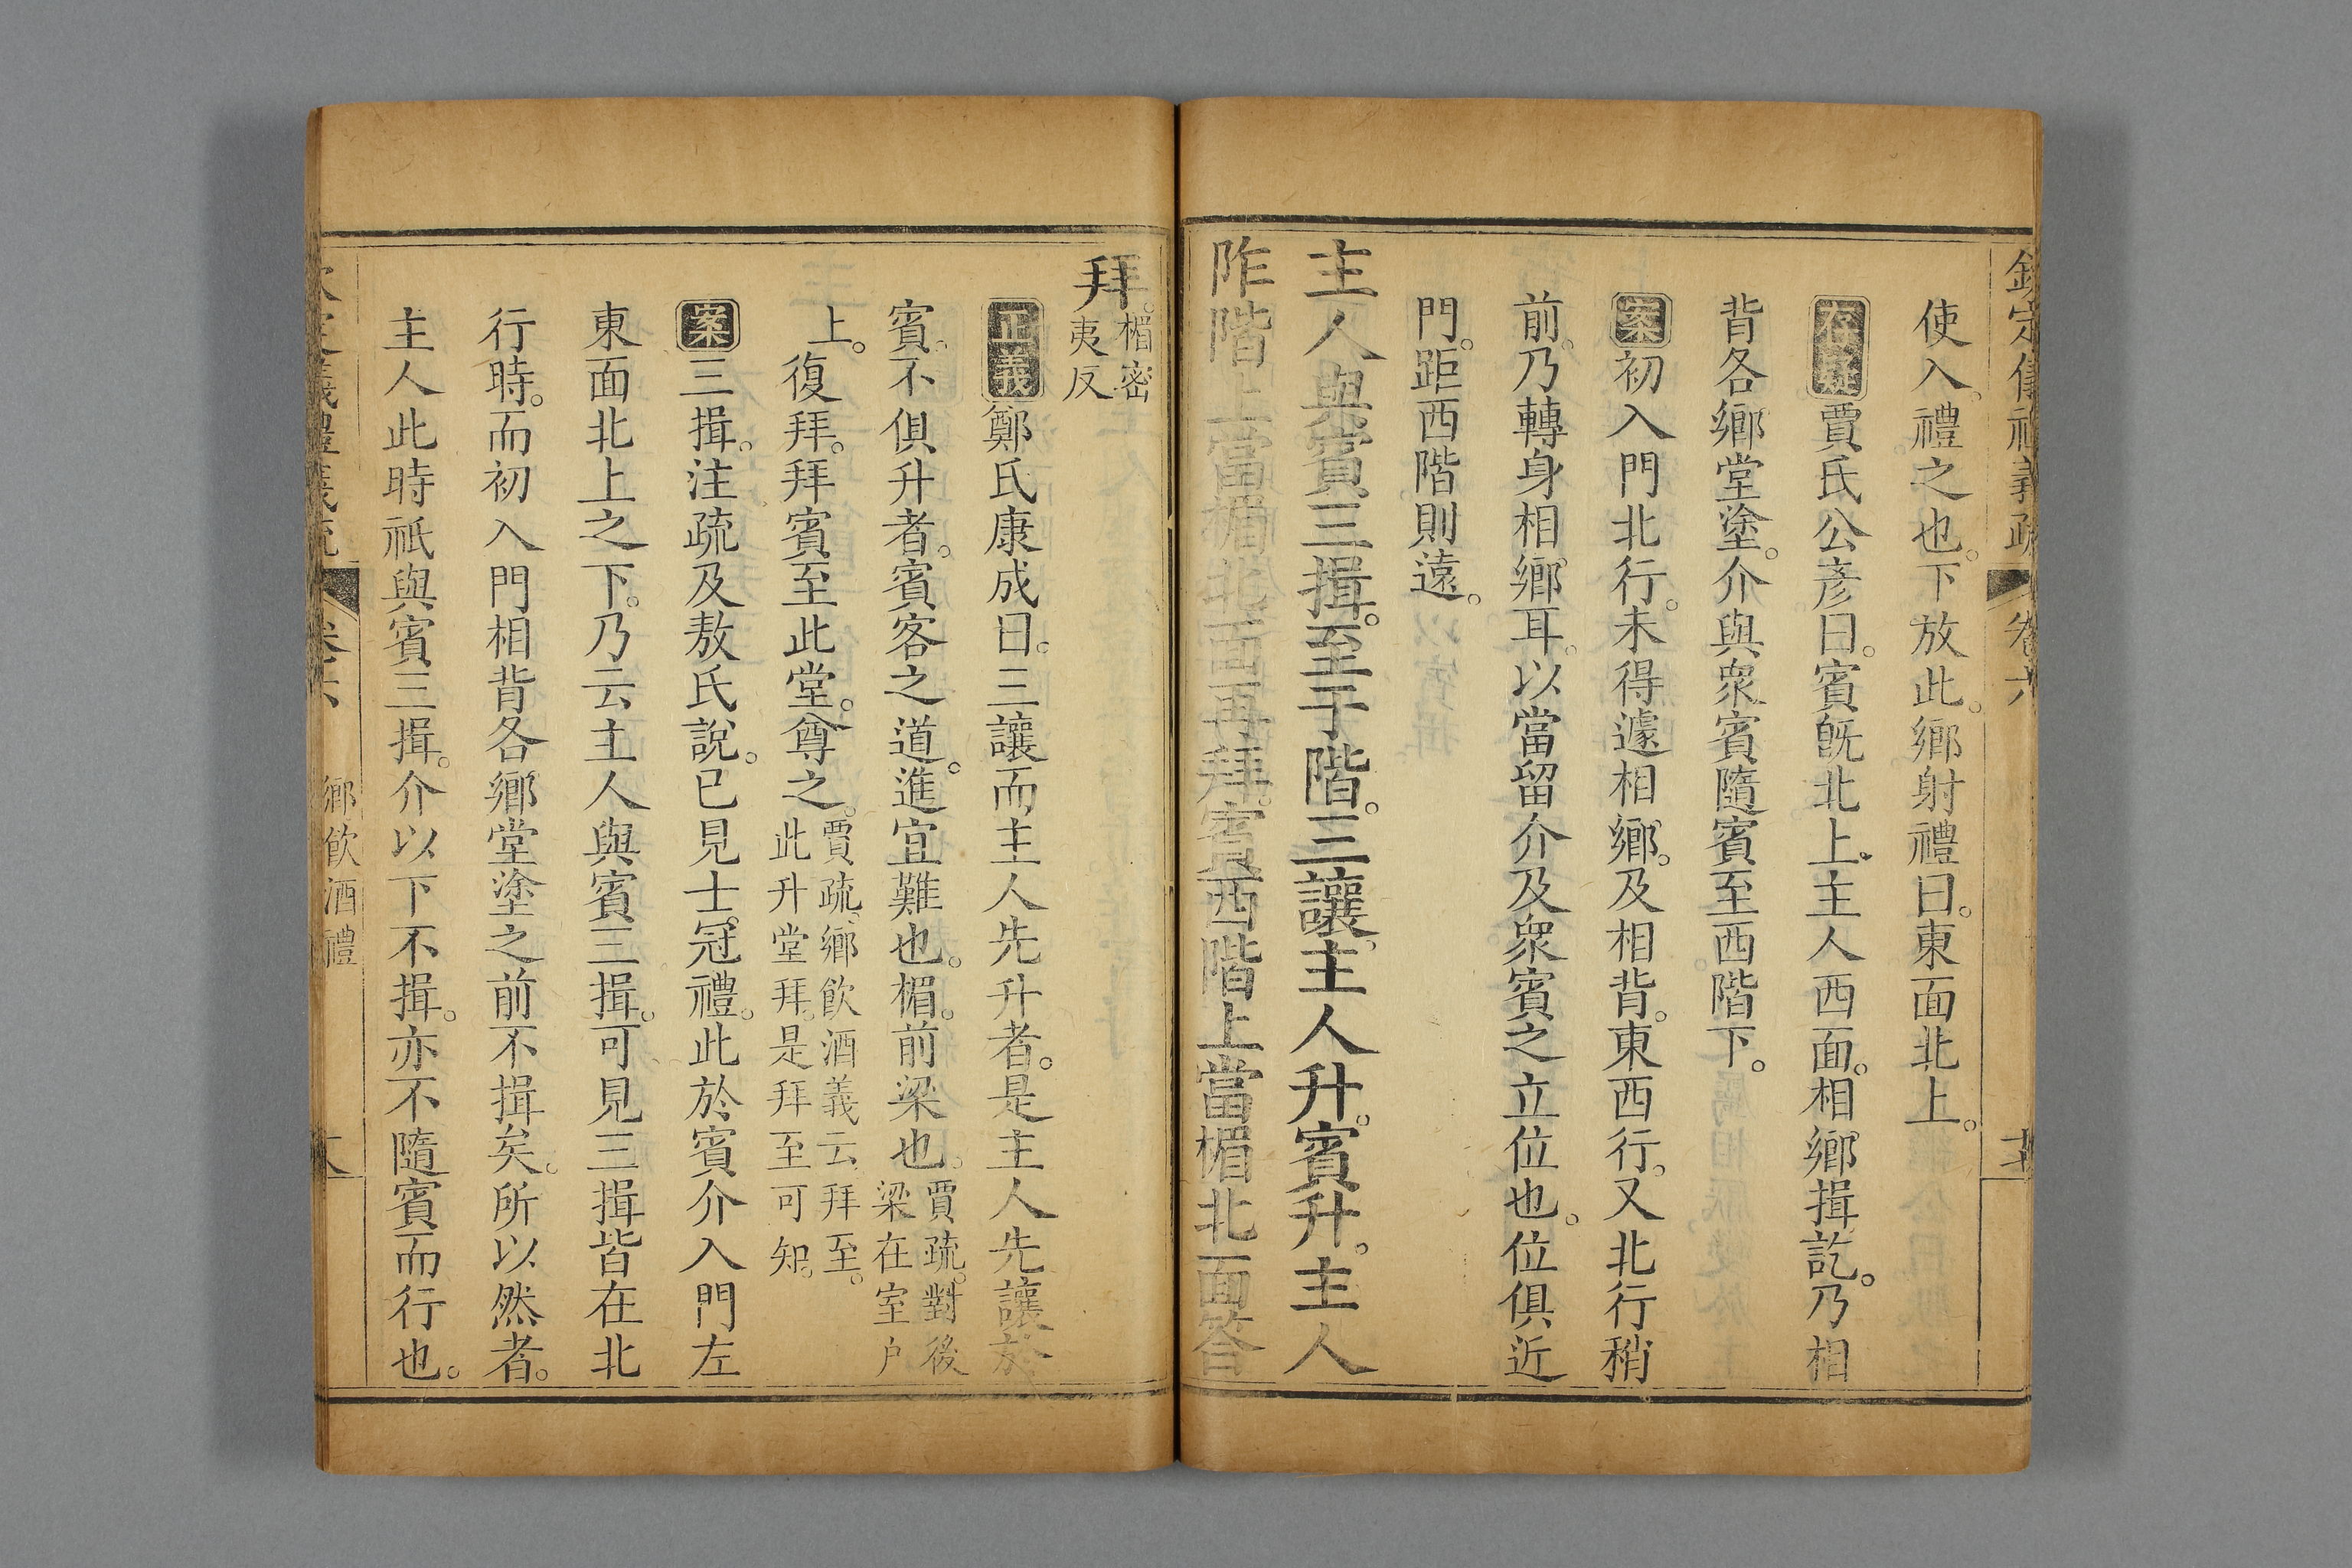 欽定儀禮義疏 卷六
使入。禮之也。下放此。鄉射禮曰。東面北上。
存疑賈氏公彥曰。賓旣北上。主人西面。相鄉揖訖。乃相
背各鄉堂塗。介與眾賓隨賓至西階下。
案初入門北行。未得遽相鄉。及相背。東西行。又北行稍
前。乃轉身相鄉耳。以當留介及眾賓之立位也。位俱近
門。距西階則遠。
主人與賓三揖。至于階。三讓。主人升。賓升。主人
阼階上當楣北面再拜。賓西階上當楣北面答
拜。楣密
夷反
正義鄭氏康成曰。三讓而主人先升者。是主人先讓於
賓。不俱升者。賓客之道。進宜難也。楣。前梁也。賈疏。對後
梁在室戶
上。復拜。拜賓至此堂。尊之。賈疏。鄉飲酒義云拜至。
此升堂拜。是拜至可知。
案三揖。注疏及敖氏說。已見士冠禮。此於賓介入門左
東面北上之下。乃云主人與賓三揖。可見三揖皆在北
行時。而初入門相背各鄉堂塗之前不揖矣。所以然者。
主人此時祇與賓三揖。介以下不揖。亦不隨賓而行也。
鄉飲酒禮